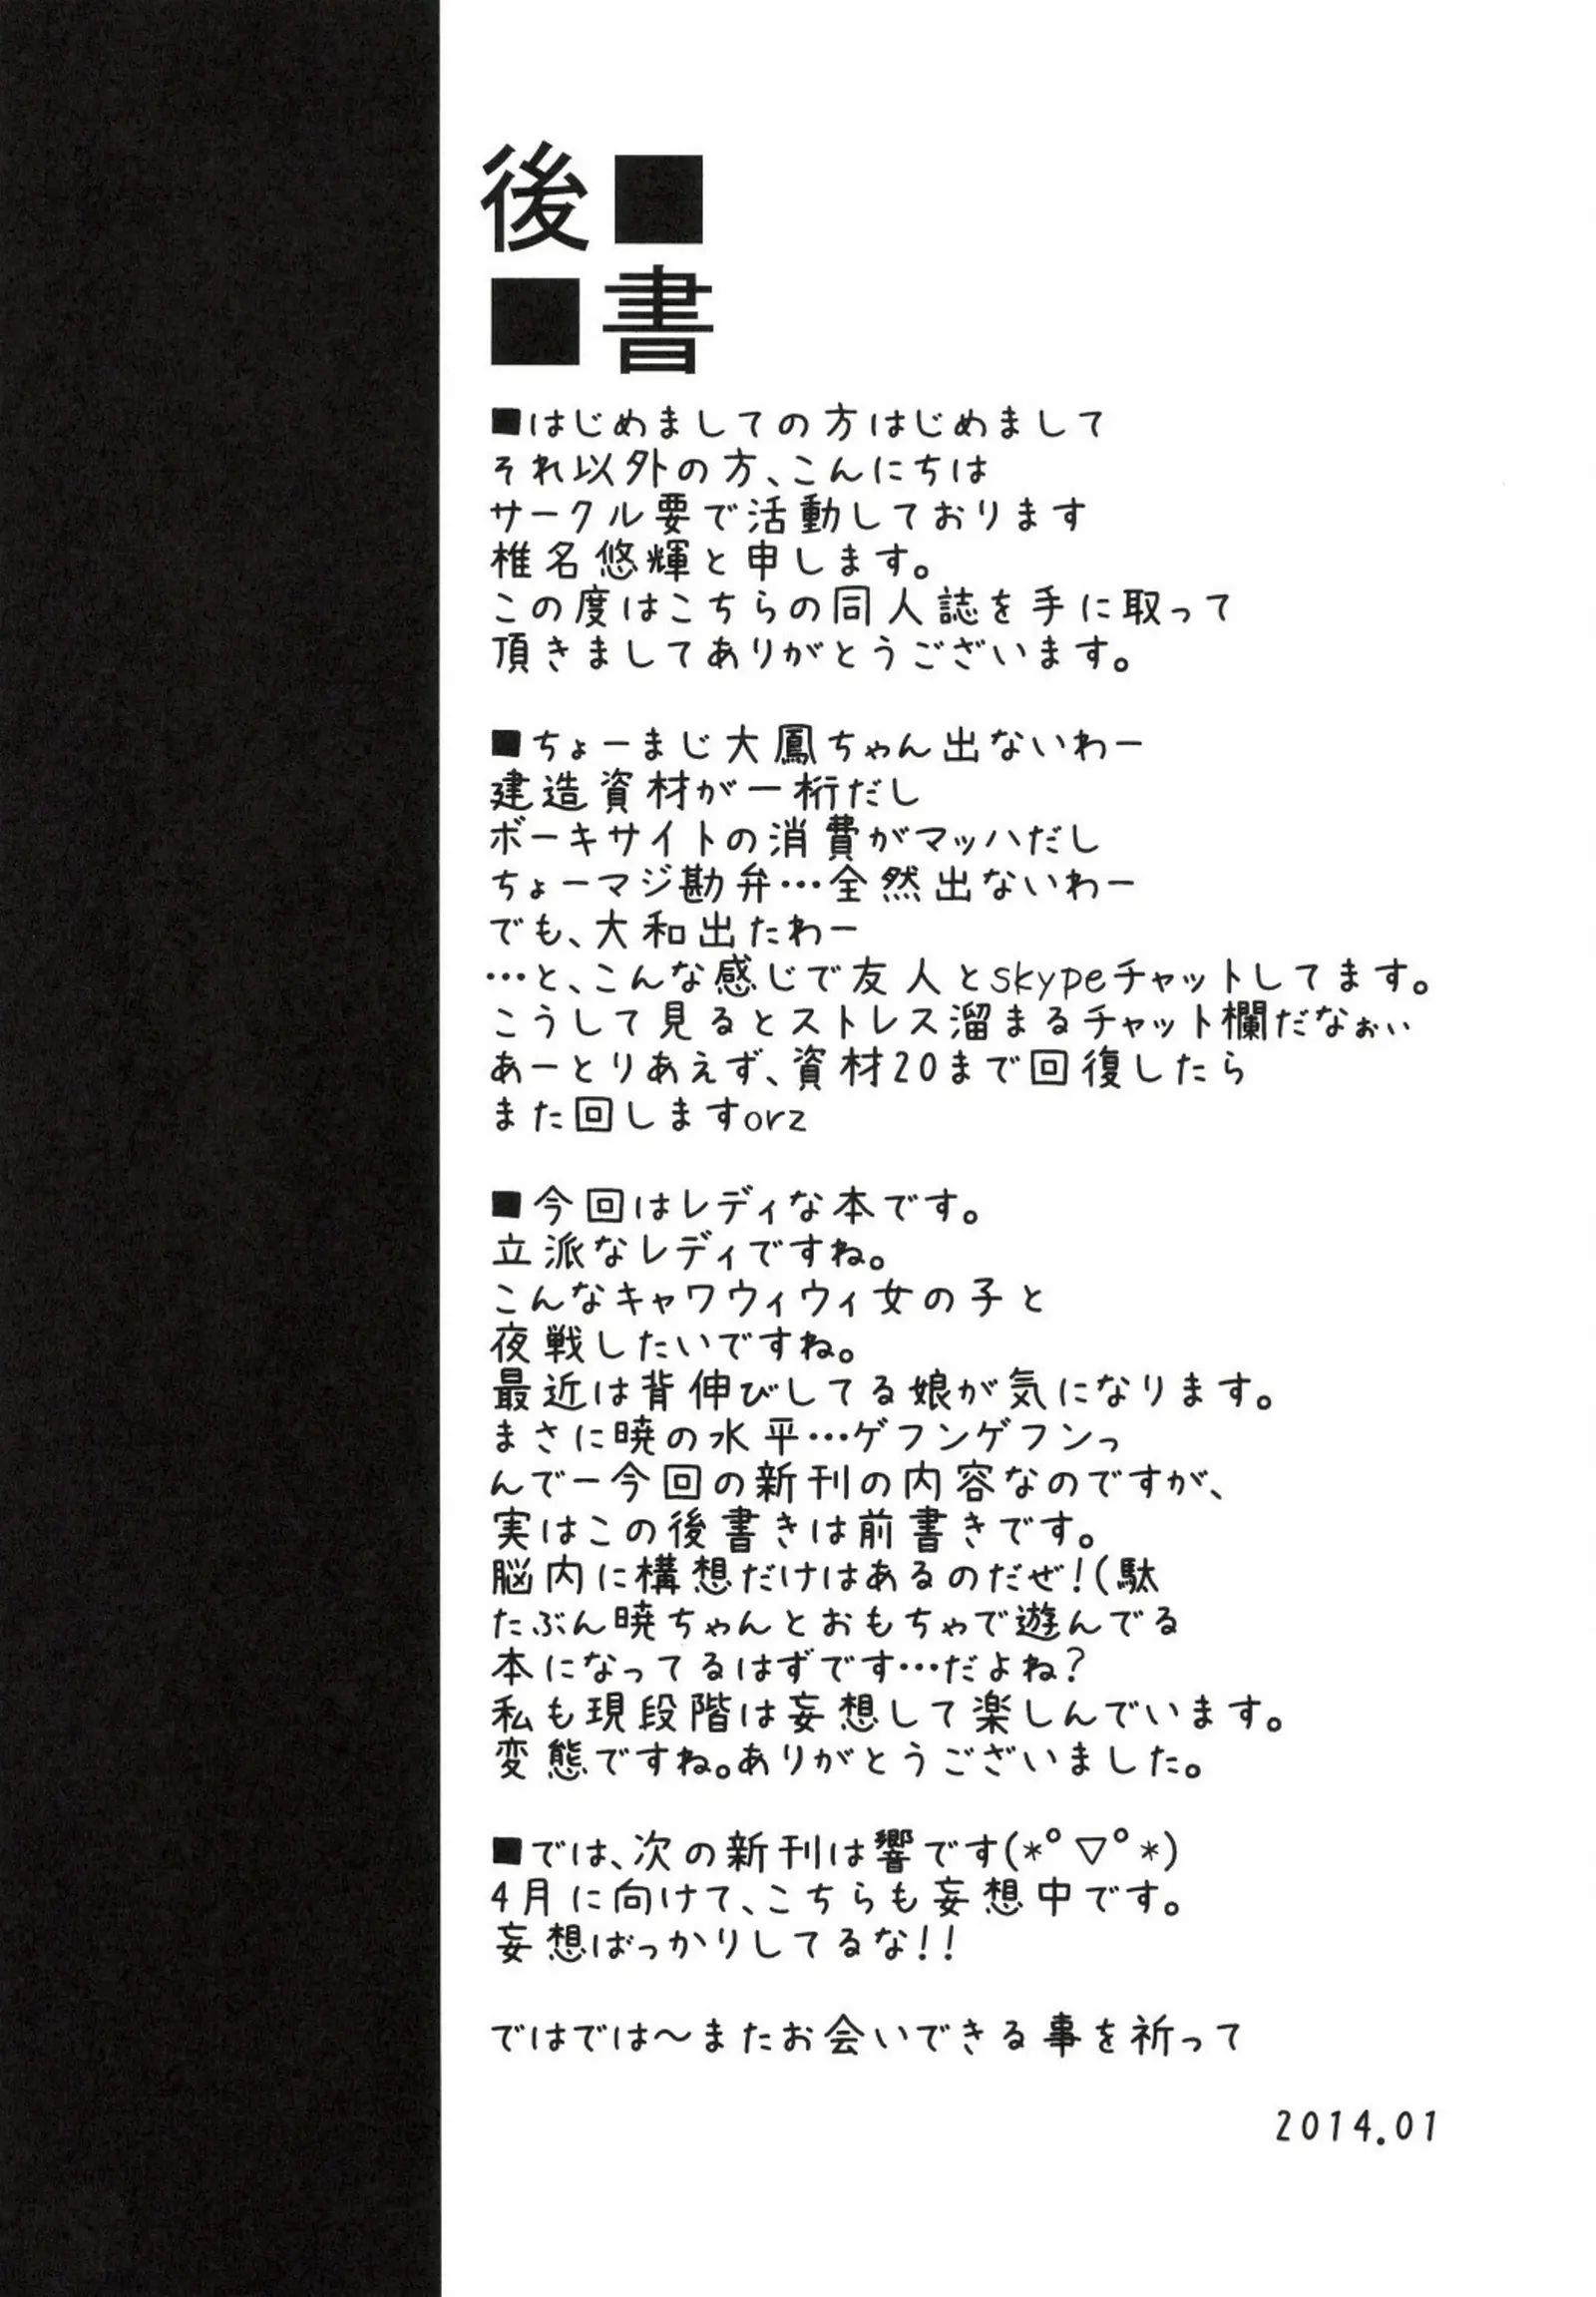 後■
■書
■はじめましての方はじめまして
それ以外の方、こんにちは
サークル要で活動しております
椎名悠輝と申します。
この度はこちらの同人誌を手に取って
頂きましてありがとうございます。
■ちょーまじ大鳳ちゃん出ないわー
建造資材が一桁だし
ボーキサイトの消費がマッハだし
ちょーマジ勘弁…全然出ないわー
でも、大和出たわー
…と、こんな感じで友人とskypeチャットしてます。
こうして見るとストレス溜まるチャット欄だなぉぃ
あーとりあえず、資材20まで回復したら
また回しますorz
■今回はレディな本です。
立派なレディですね。
こんなキャワウィウィ女の子と
夜戦したいですね。
最近は背伸びしてる娘が気になります。
まさに暁の水平…ゲフンゲフンっ
んでー今回の新刊の内容なのですが、
実はこの後書きは前書きです。
脳内に構想だけはあるのだぜ！(駄
たぶん暁ちゃんとおもちゃで遊んでる
本になってるはずです…だよね？
私も現段階は妄想して楽しんでいます。
変態ですね。ありがとうございました。
■では、次の新刊は響です(*ﾟ▽ﾟ*)
4月に向けて、こちらも妄想中です。
妄想ばっかりしてるな！！
ではでは～またお会いできる事を祈って
2014.01